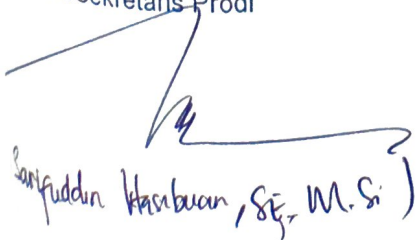 Sekretaris Prodi
Sarifuddin Hasibuan, SE, M.Si )